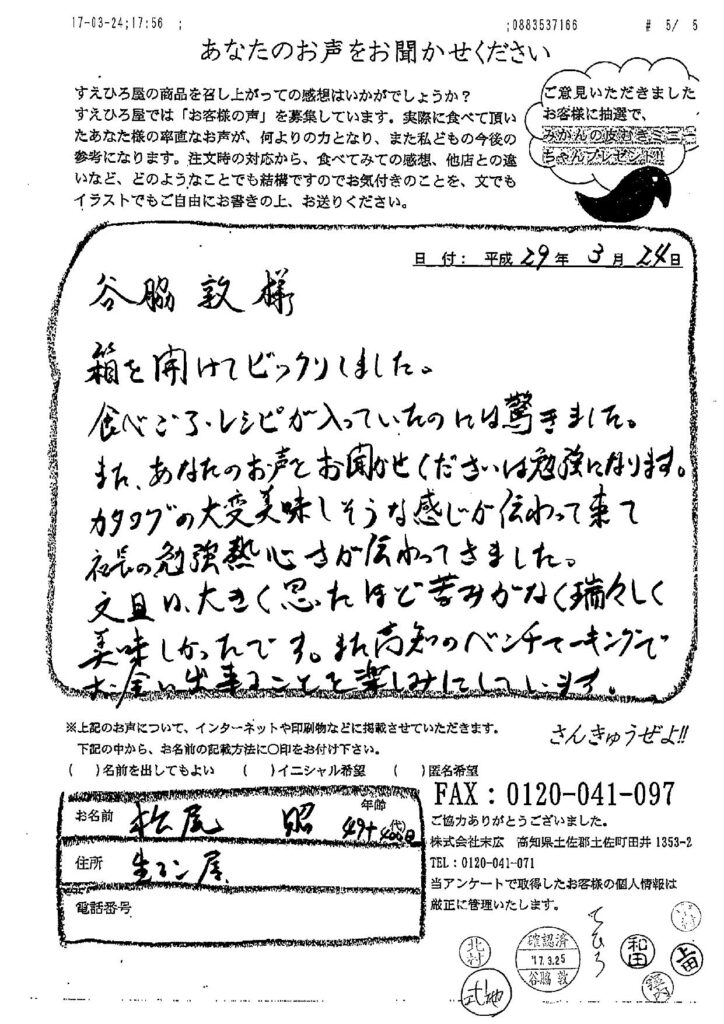 17-03-24;17:56 ; ;0883537166 # 5/ 5
あなたのお声をお聞かせください
すえひろ屋の商品を召し上がっての感想はいかがでしょうか？
すえひろ屋では「お客様の声」を募集しています。実際に食べて頂い
たあなた様の率直なお声が、何よりの力となり、また私どもの今後の
参考になります。注文時の対応から、食べてみての感想、他店との違
いなど、どのようなことでも結構ですのでお気付きのことを、文でも
イラストでもご自由にお書きの上、お送りください。
ご意見いただきました
お客様に抽選で、
みかんの皮むきミミニ
ちゃんプレゼント!!
日 付： 平成 29 年 3 月 24 日
谷脇 敦 様
箱を開けてビックリしました。
食べごろ・レシピが入っていたのには驚きました。
また、あなたのお声をお聞かせくださいは勉強になります。
カタログの大変美味しそうな感じが伝わって来て
社長の勉強熱心さが伝わってきました。
文旦は、大きく思ったほど苦みがなく瑞々しく
美味しかったです。また高知のベンチマーキングで
お会い出来ることを楽しみにしています。
※上記のお声について、インターネットや印刷物などに掲載させていただきます。
下記の中から、お名前の記載方法に○印をお付け下さい。
さんきゅうぜよ!!
( )名前を出してもよい ( )イニシャル希望 ( )匿名希望
お名前 松尾 昭 年齢 49才 (代)
住所 生コン屋
電話番号
FAX：0120-041-097
ご協力ありがとうございました。
株式会社末広 高知県土佐郡土佐町田井 1353-2
TEL：0120-041-071
当アンケートで取得したお客様の個人情報は
厳正に管理いたします。
北村
武地
確認済
'17.3.25
谷脇 敦
ちひろ
和田
上田